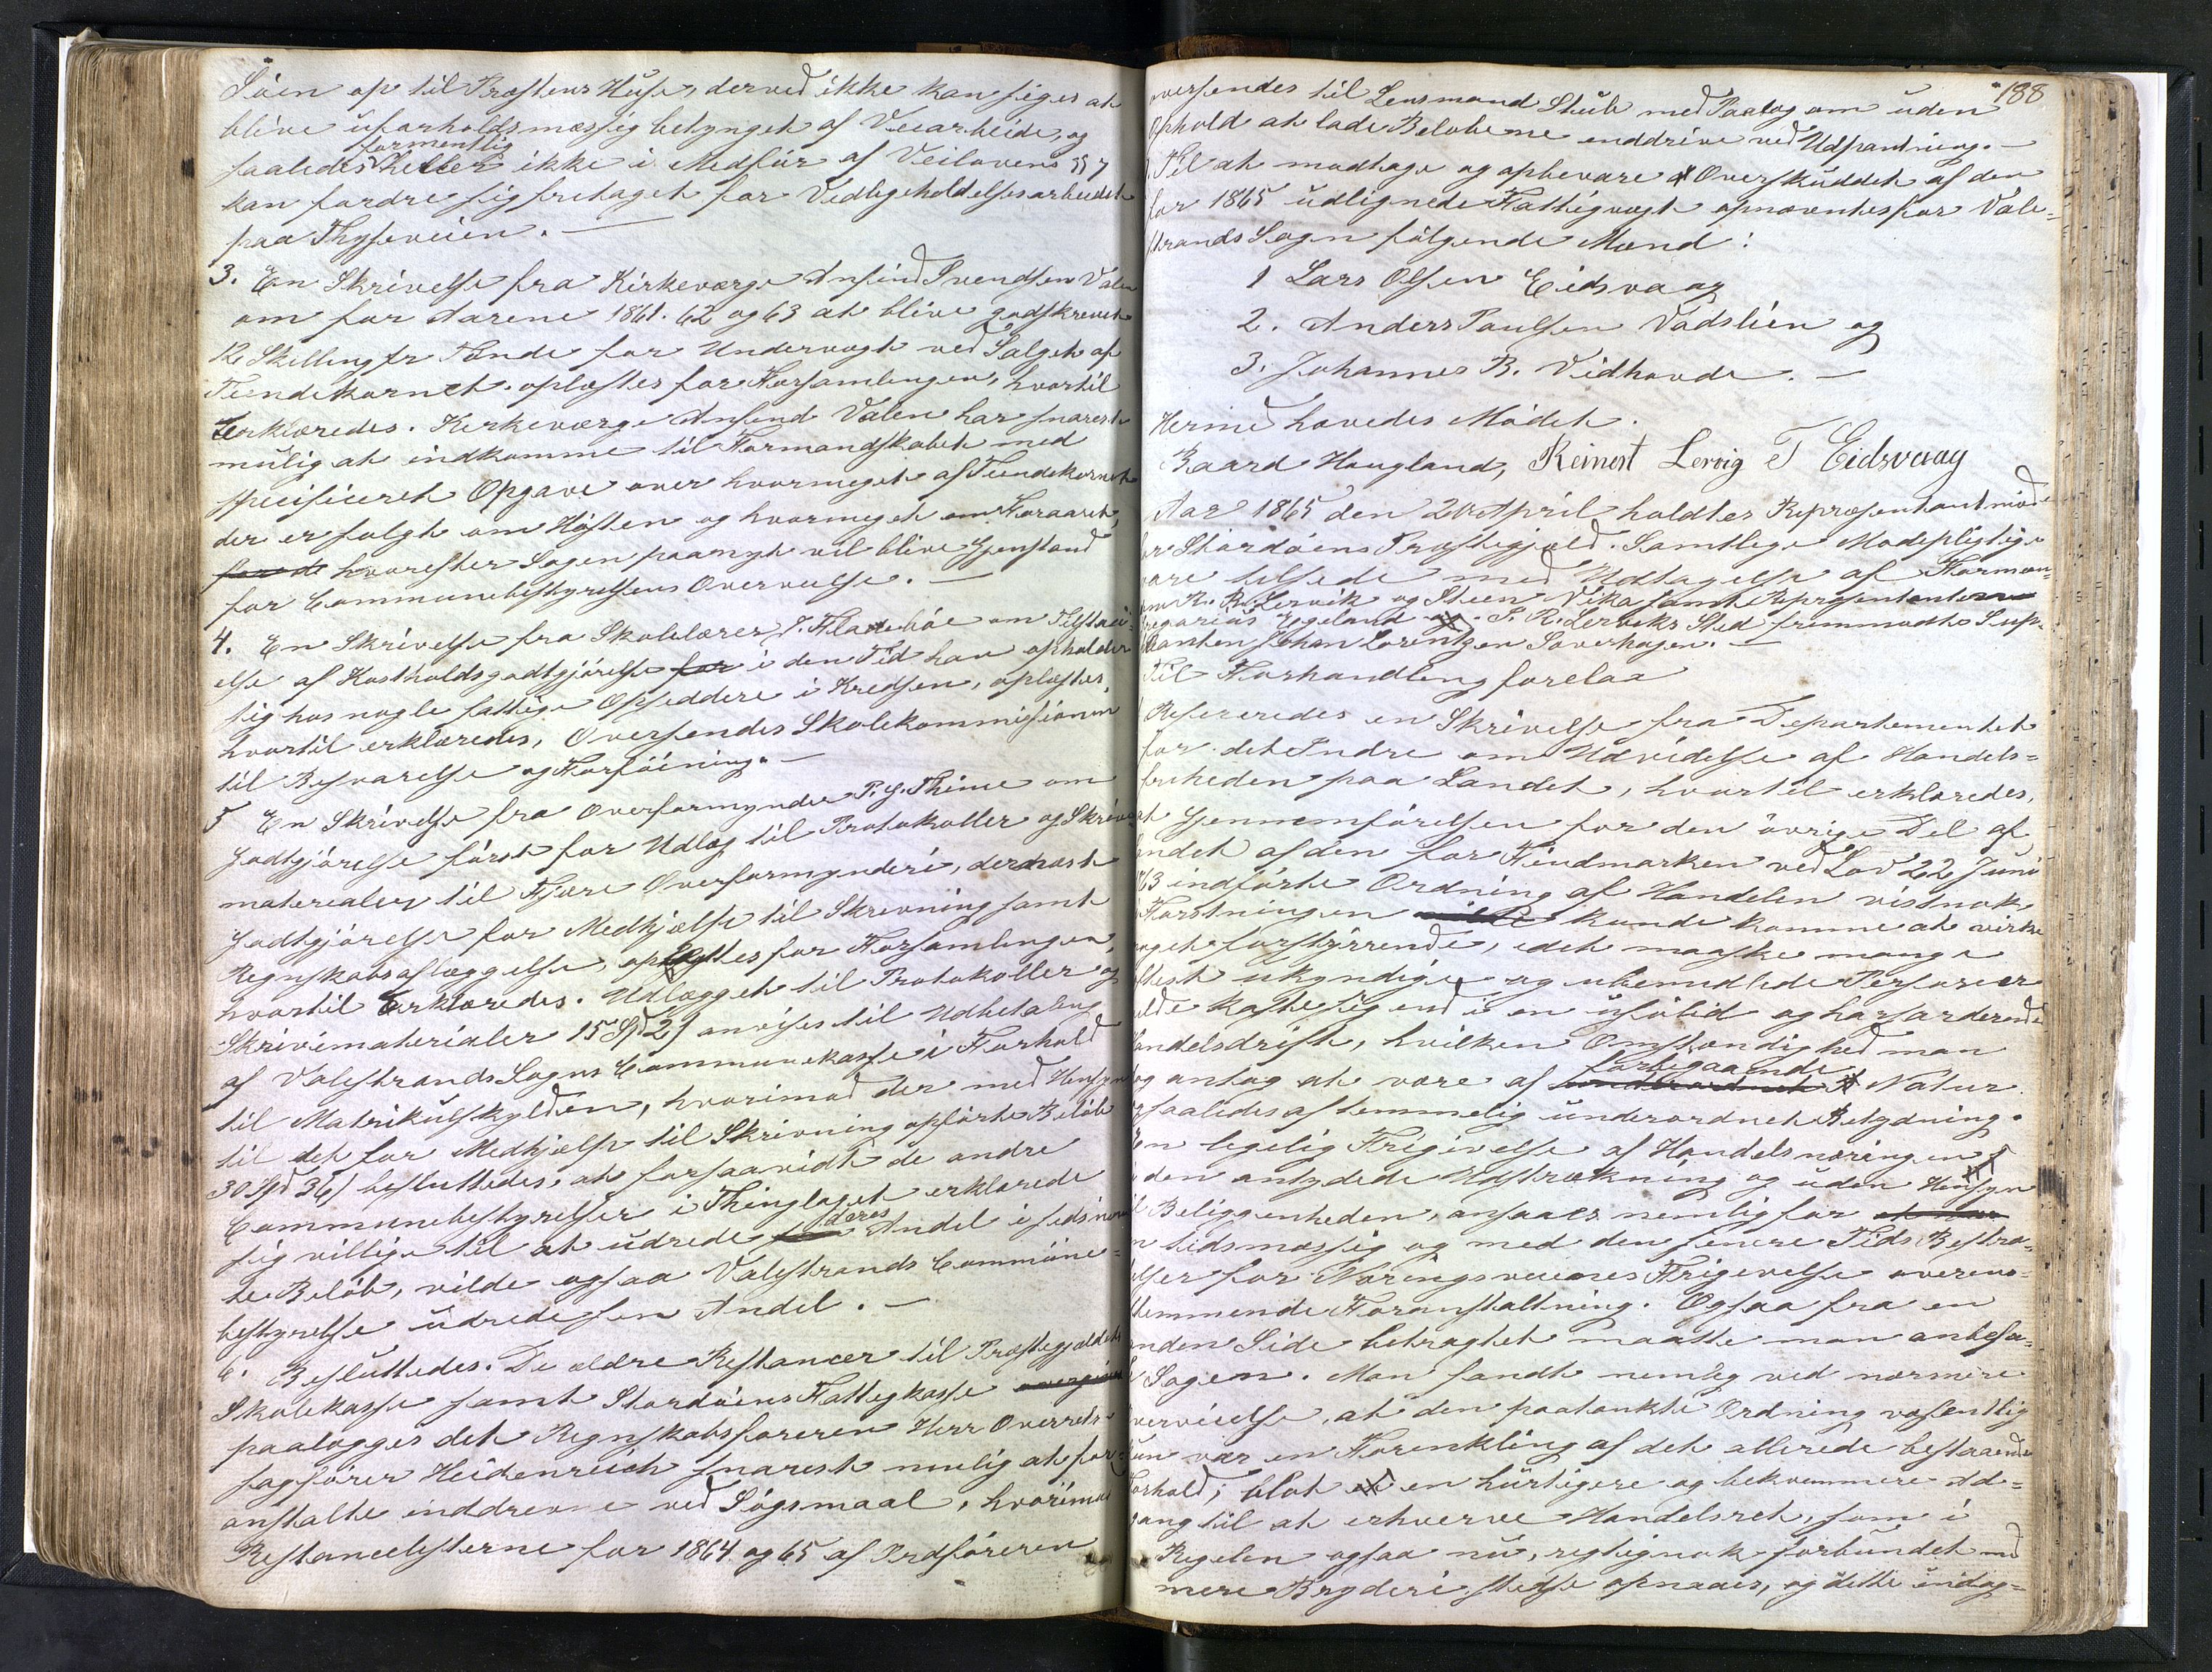 Söen op til Præstens Huse, derved ikke kan siges at
blive uforholdsmæssig betynget af Veiarbeide, og
saaledes formentlig heller ikke i Medfür af Veilovens §57
kan fordre sig fritaget for Vedligeholdelsesarbeidet
paa Thyseveien. —
3. En Skrivelse fra Kirkeværge Ansend Svendsen Valen
om for Aarene 1861. 62 og 63 at blive godskrevet
12 Skilling pr Tønde for Undervægt ved Salget af
Tiendekornet oplæstes for Forsamlingen, hvortil
Erklæredes. Kirkeværge Ansend Valen har snarest
mulig at indkomme til Formandskabet med
specificeret Opgave over hvormeget af Tiendekornet
der er solgt om Høsten og hvormeget om Foraaret,
hvorefter Sagen paanyt vil blive Gjenstand
for Communebestyrelsens Overveielse. —
4. En Skrivelse fra Skolelærer J. Flateböe om Tilstaa-
else af Kostholdsgodtgjörelse for i den Tid han opholder
sig hos nogle fattige Opsiddere i Kredsen, oplæstes,
hvortil erklæredes, Oversendes Skolekommissionen
til Besvarelse og Forföining. —
5 En Skrivelse fra Overformynder P. G. Thime om
Godtgjörelse först for Udlæg til Protokoller og Skrive-
materialier til Fjære Overformynderi, dernæst
Godtgjörelse for Medhjælp til Skrivning samt
Regnskabsaflæggelse, oplæstes for Forsamlingen,
hvortil Erklæredes. Udlægget til Protokoller og
Skrivematerialer 15 Spd 21 anvises til Udbetaling
af Valestrands Sogns Communekasse i Forhold
til Matrikulskylden, hvorimod der med Hensyn
til det for Medhjælp til Skrivning opförte Belöb
30 Spd 36/ besluttedes, at forsaavidt de andre
Communebestyrelser i Thinglaget erklærede
sig villige til at udrede deres Andel i sidstnævn
te Belöb, vilde ogsaa Valestrands Commune-
bestyrelse udrede sin Andel. —
6. Besluttedes. De ældre Restancer til Præstegjældets
Skolekasse samt Stordöens Fattigkasse
paalægges det Regnskabsföreren Herr Overrets-
sagförer Heidenreich snarest mulig at for-
anstalte inddrevne ved Sögsmaal, hvorimod
Restancelisterne for 1864 og 65 af Ordföreren
188
oversendes til Lensmand Stüb med Paalæg om uden
Ophold at lade Belöbene inddrive ved Udpantning. —
Til at modtage og opbevare Overskuddet af den
for 1865 udlignede Fattigvægt opnævntes for Vale-
strands Sogn fölgende Mænd:
1 Lars Olsen Eidsvaag
2. Anders Paulsen Vadslien og
3. Johannes B. Vidhovde. —
Hermed hævedes Mödet.
Baard Hougland, Reinert Lervig T Eidsvaag
Aar 1865 den 20 April holdtes Repræsentantmöde
for Stordöens Præstegjæld. Samtlige Mödepligtige
vare tilstede med Undtagelse af Formæn-
R. R. Lervik og Steen Vika samt Repræsentanterne
Gregarius Egeland og. I R. Lerviks Sted fremmödte Sup-
leanten Johan Lorentzen Sæverhagen. —
Til Forhandling forelaa
Refereredes en Skrivelse fra Departementet
for det Indre om Udvidelse af Handels-
friheden paa Landet, hvortil erklæredes,
at Gjennemförelsen for den övrige Del af
Landet af den for Findmarken ved Lov 22 Juni
1863 indförte Ordning af Handelen vistnok
Forstningen kunde komme at virke
noget forstyrrende, idet maaske mange
ukyndige og ubemidlede Personer
vilde kaste sig ind i en usolid og hasarderende
Handelsdrift, hvilken Omstændighed man
dog antog at være af forbigaaende Natur
og saaledes af temmelig underordnet Betydning.
En legelig Frigivelse af Handelsnæringen
i den antydede Udstrækning og uden Hensyn
til Beliggenheden, ansaaes nemlig for
en tidsmæssig og med den senere Tids Bestræ-
belser for Næringsveienes Frigivelse overens-
stemmende Foranstaltning. Ogsaa fra en
anden Side betragtet maatte man anbefa-
le Sagen. Man fandt nemlig ved nærmere
Overveielse, at den paatænkte Ordning væsentlig
kun var en Forenkling af det allerede bestaaende
Forhold; blot en hurtigere og bekvemmere Ad-
gang til at erhverve Handelsret, som i
Regelen ogsaa nu, rigtignok forbundet med
mere Bryderi stedse opnaaes, og dette endog-